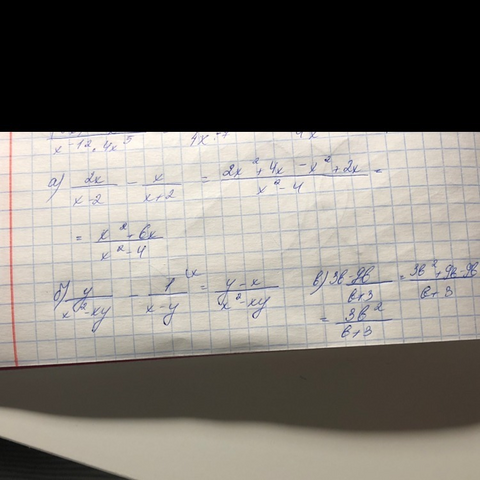 x - 12, 4x^5
а) 2x/(x-2) - x/(x+2) = (2x^2+4x-x^2+2x)/(x^2-4) =
= (x^2+6x)/(x^2-4)
б) y/(x^2-xy) - 1/(x-y) (x = (y-x)/(x^2-xy) в) 3b - 9b/(b+3) = (3b^2+9b-9b)/(b+3)
= 3b^2/(b+3)